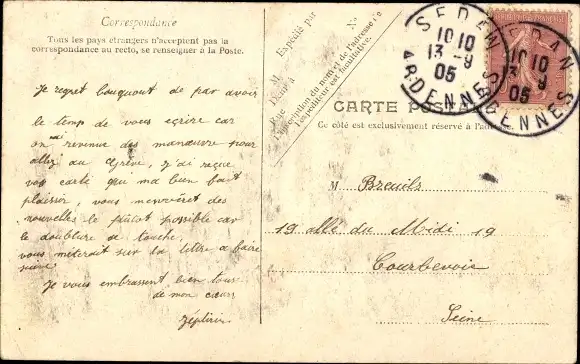 Correspondance
Tous les pays étrangers n'acceptent pas la
correspondance au recto, se renseigner à la Poste.
Je regret bouquont de par avoir
le temp de vous eçrire car
on ai revenue des manœuvre pour
allez au Grève, j'ai reçue
vos carte qui ma bien fait
plaisser, vous menvoiret des
nouvelles le plutot possible car
le doublure de touche,
vous méterait sur la lettre a faire
suivre
Je vous embrassent bien tous
de mon cœur
Zéphirin
Expédié par
M
N°
Rue
L'inscription du nom et de l'adresse de
l'expéditeur est facultative.
CARTE POSTALE
Ce côté est exclusivement réservé à l'adresse.
SEDAN
10 10
13 -9
05
ARDENNES
SEDAN
10 10
13 9
05
ARDENNES
M Breuils
19 allé du Midi 19
Courbevoie
Seine